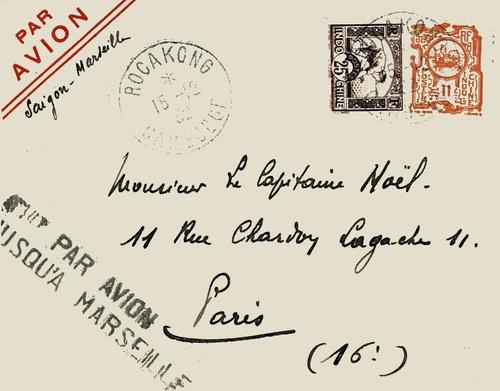 PAR
AVION
Saigon - Marseille
ROCAKONG
15-12
INDO
25c
CHINE
R F
11
Monsieur Le Capitaine Noël.
11 Rue Chardon Lagache 11.
Paris
(16:)
PAR AVION
JUSQU'A MARSEILLE